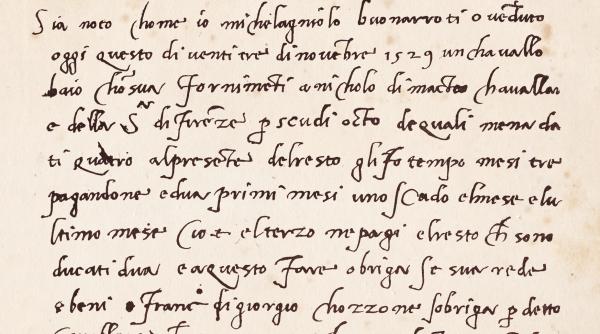 Sia noto chome io michelagniolo buonarroti o veduto
oggi questo di venti tre di novēbre 1529 un chavallo
baio chō sua fornimēti a nicholo di matteo chavallar
e della Sᵃʳ di firēze p scudi octo de quali me na da
ti quatro al presēte del resto gli fo tempo mesi tre
pagandone e dua primi mesi uno scudo el mese e lu
ltimo mese cioe el terzo ne pagi el resto ch sono
ducati dua e a questo fare obriga se sua rede
e beni e franc di giorgio chozzone sobriga p detto